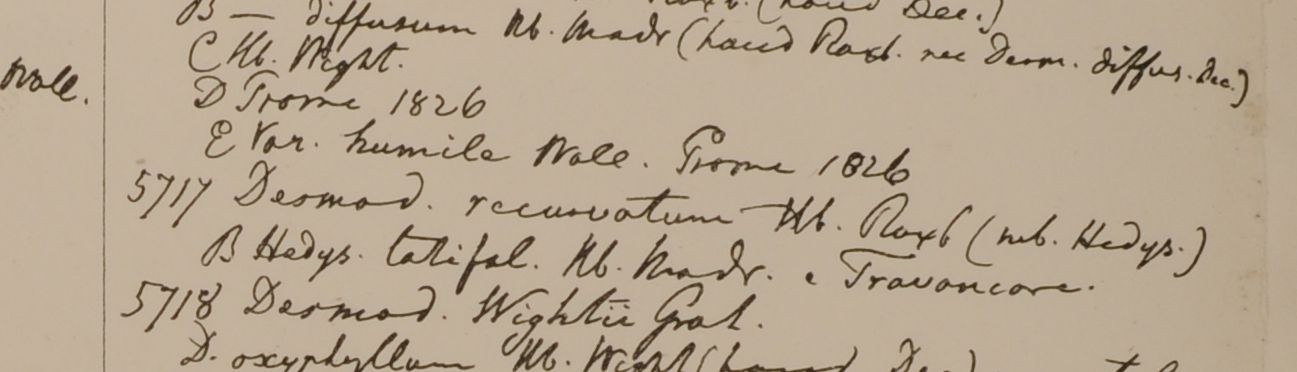 B — diffusum Hb. Madr (haud Roxb. nec Desm. diffus. Dec.)
C Hb. Wight.
Wall.
D Prome 1826
E Var. humile Wall. Prome 1826
5717 Desmod. recurvatum Hb. Roxb (sub. Hedys.)
B Hedys. latifol. Hb. Madr. e Travancore.
5718 Desmod. Wightii Grah.
D. oxyphyllum Hb. Wight (haud Dec)